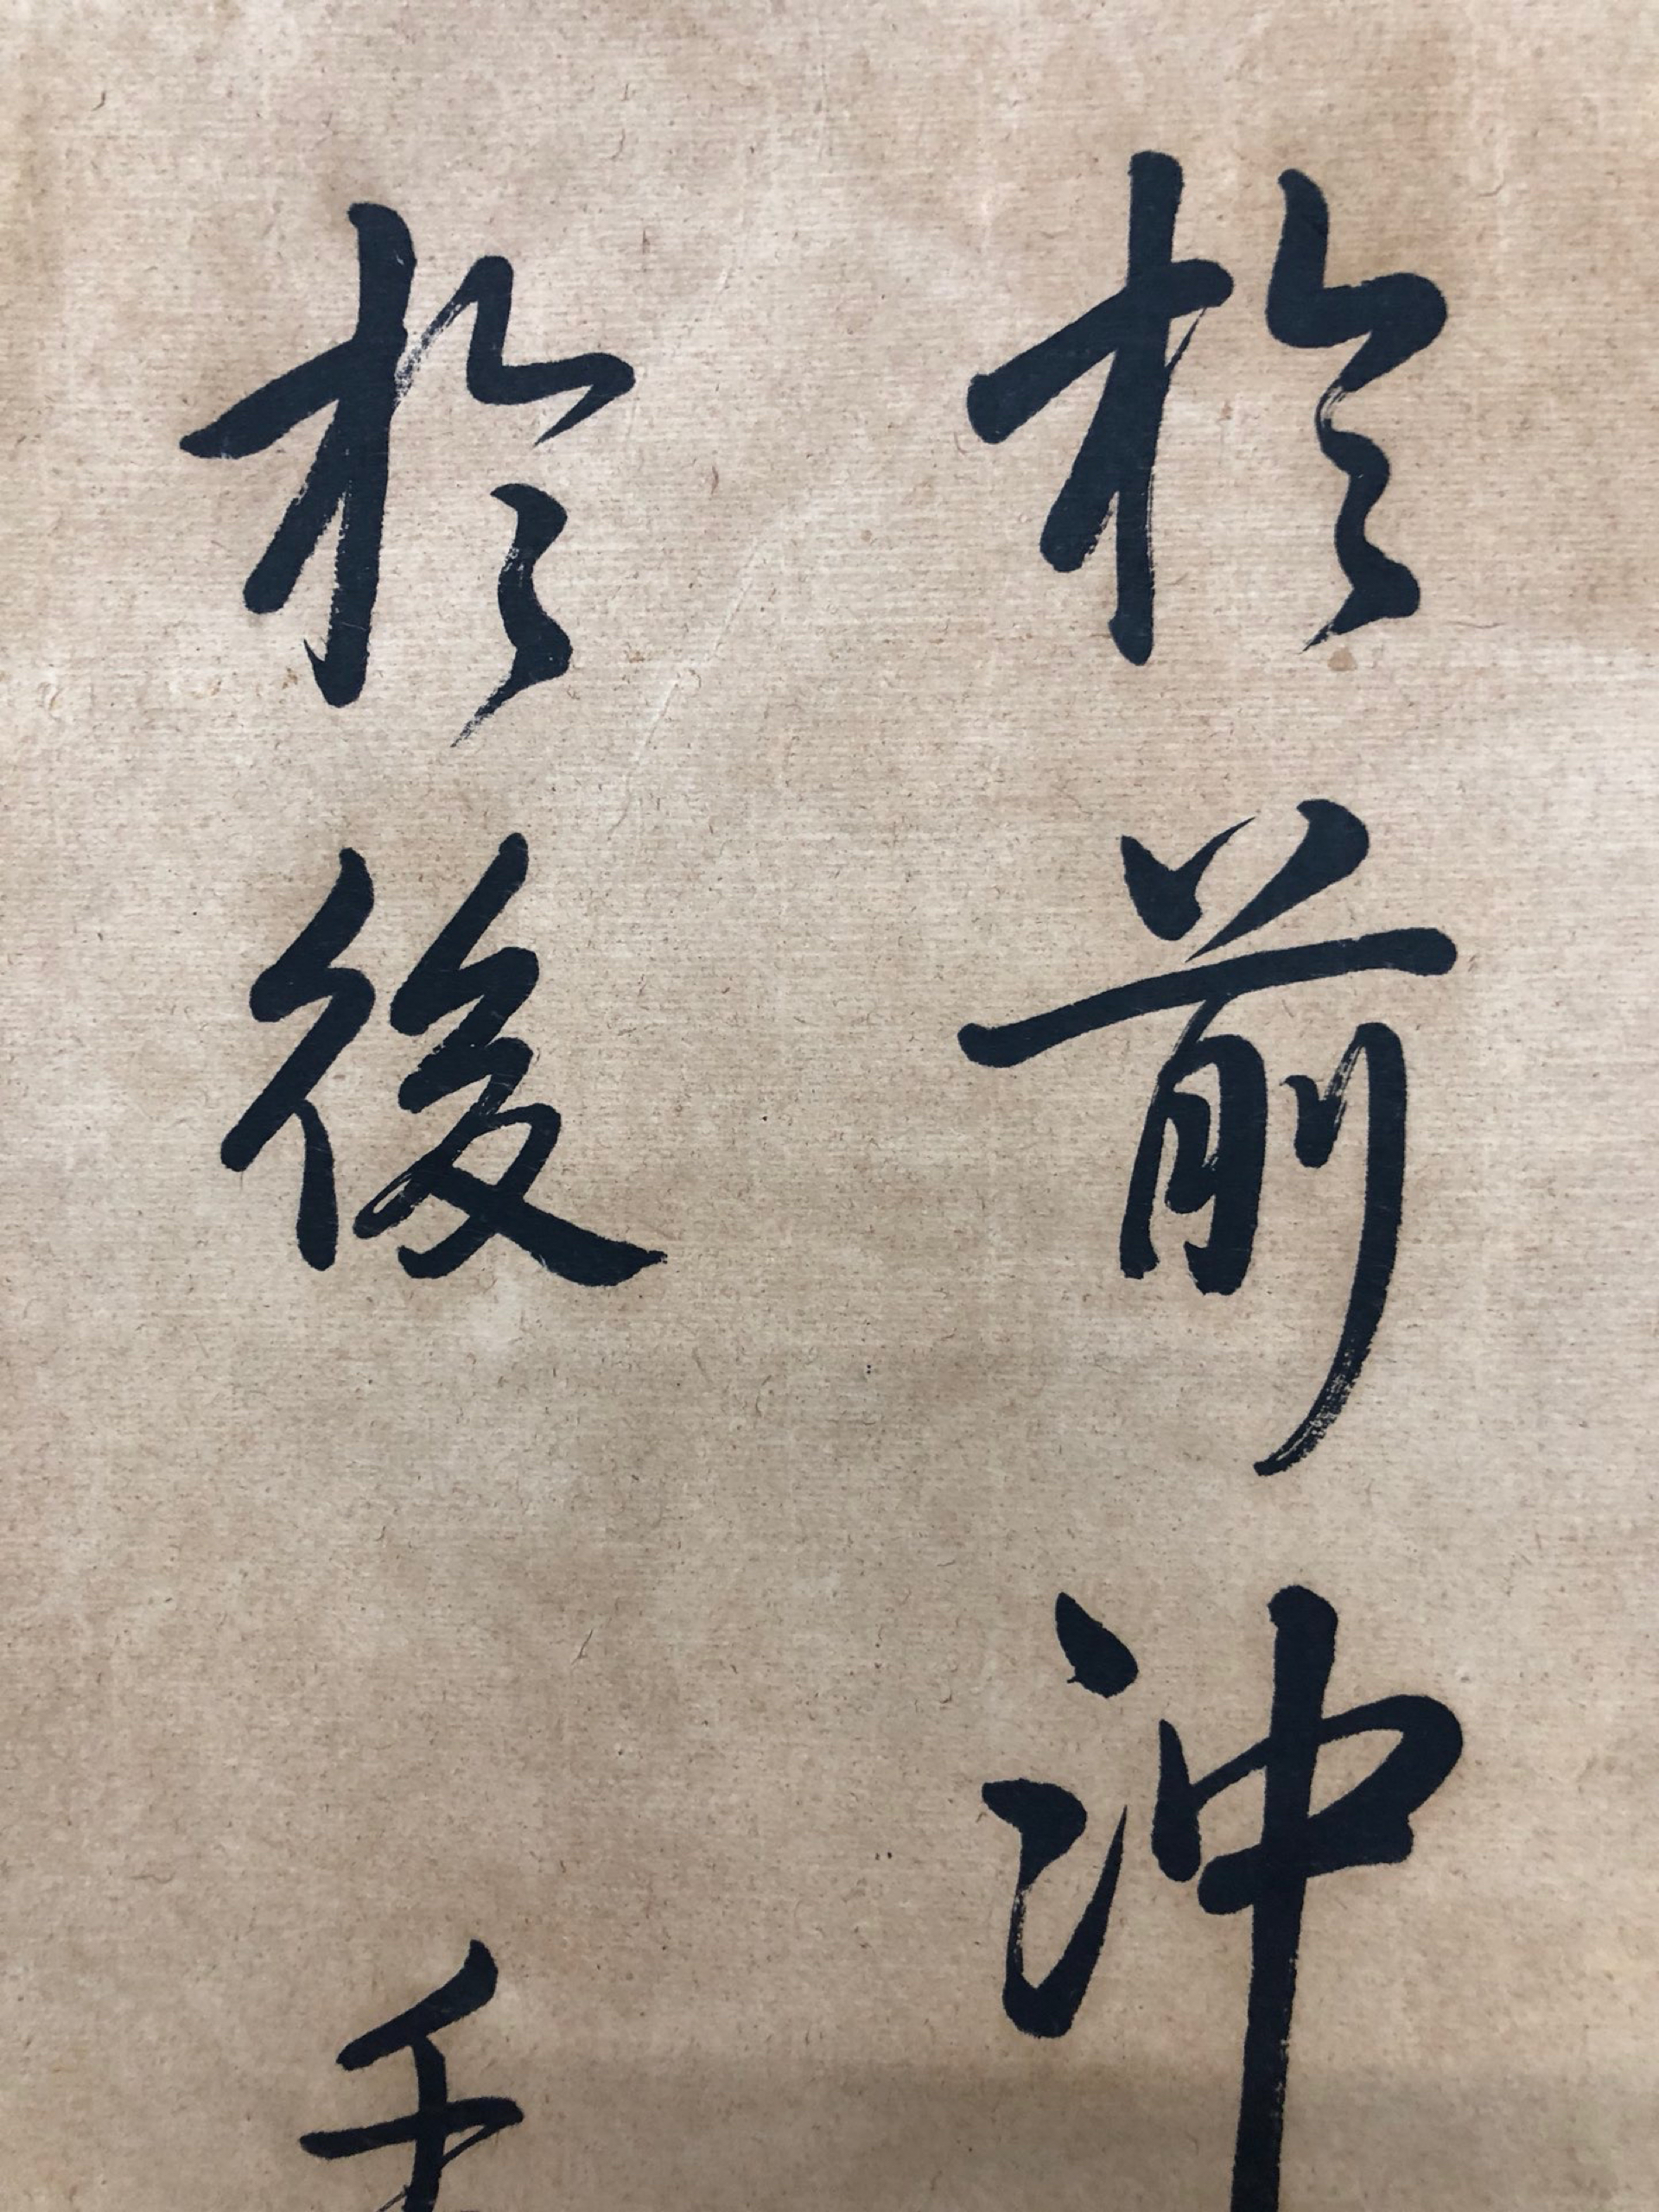 於前沖
於後